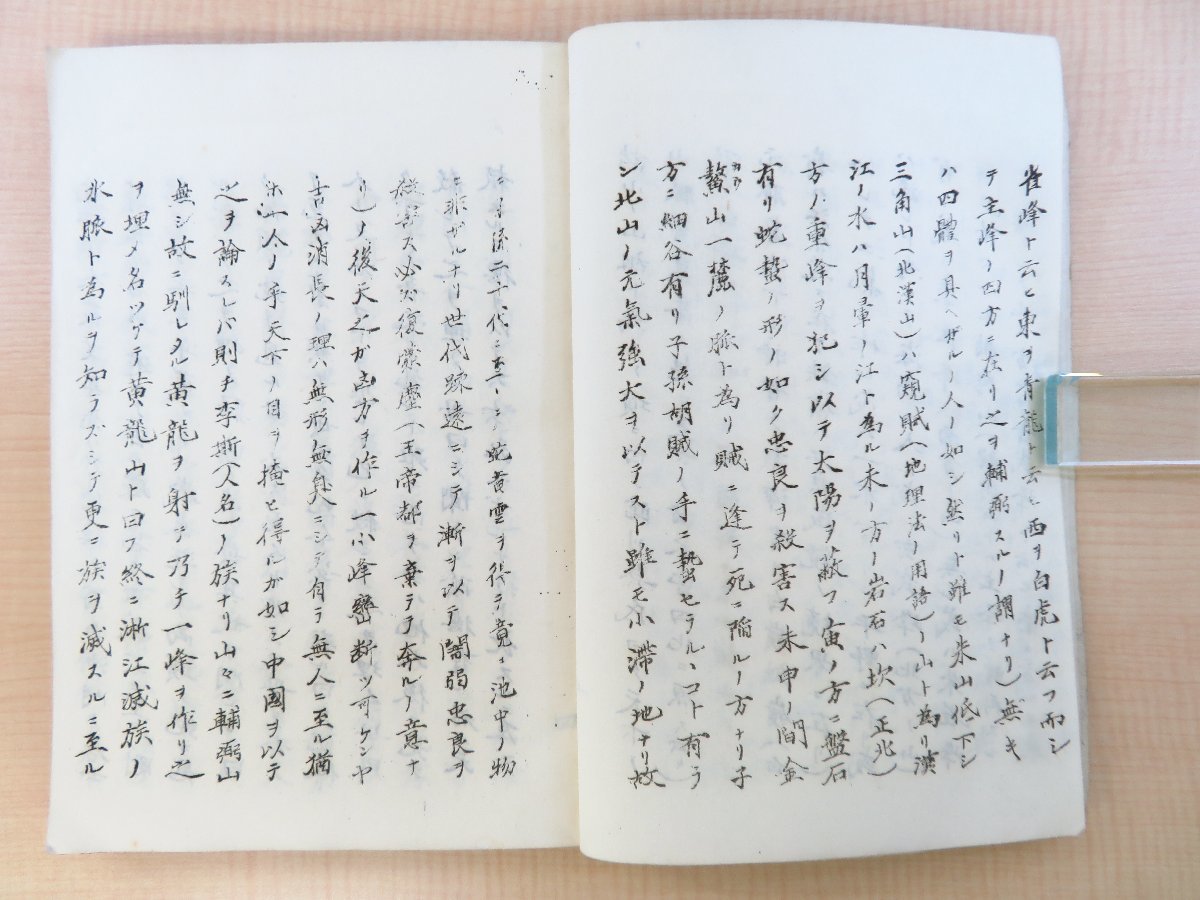 雀峰ト云ヒ東ヲ青龍ト云ヒ西ヲ白虎ト云フ而シ
テ主峰ノ四方ニ在リ之ヲ輔弼スルノ謂ナリ)無キ
ハ四體ヲ具ヘザルノ人ノ如シ然リト雖モ来山低下シ
三角山(北漢山)ハ窺賊(地理法ノ用語)ノ山ト為リ漢
江ノ水ハ月暈ノ江ト為ル未ノ方ノ岩石ハ坎(正北)
方ノ重峰ヲ犯シ以テ太陽ヲ蔽フ寅ノ方ニ盤石
有リ蛇蟄ノ形ノ如ク忠良ヲ殺害ス未申ノ間金
鰲山一麓ノ脈ト為リ賊ニ逢テ死ニ陥ルノ方ナリ子
方ニ細谷有リ子孫胡賊ノ手ニ蟄セラルヽコト有ラ
ン北山ノ元氣強大ヲ以テスト雖モ不滞ノ地ナリ故
ニ 流二十代ニ 蛇 雲ヲ得テ竟ニ池中ノ物
ニ非ザルナリ世代踈遠ニシテ漸ヲ以テ闇弱忠良ヲ
殺害ス必ズ復蒙塵(王帝都ヲ棄テ了奔ルノ意ナ
リ)ノ後天之ガ凶方ヲ作ル一小峰巒断ツ可ケンヤ
吉凶消長ノ理ハ無形無臭ニシテ有テ無人ニ至ル猶
ホ一人ノ手天下ノ目ヲ掩ヒ得ルガ如シ中國ヲ以テ
之ヲ論スレバ則チ李斯(人名)ノ族ナリ山々ニ輔弼山
無シ故ニ馴レタル黄龍ヲ射ニ乃チ一峰ヲ作リ之
ヲ埋メ名ツケテ黄龍山ト曰フ終ニ淅江滅族ノ
水脈ト為ルヲ知ラズシテ更ニ族ヲ滅スルニ至ル